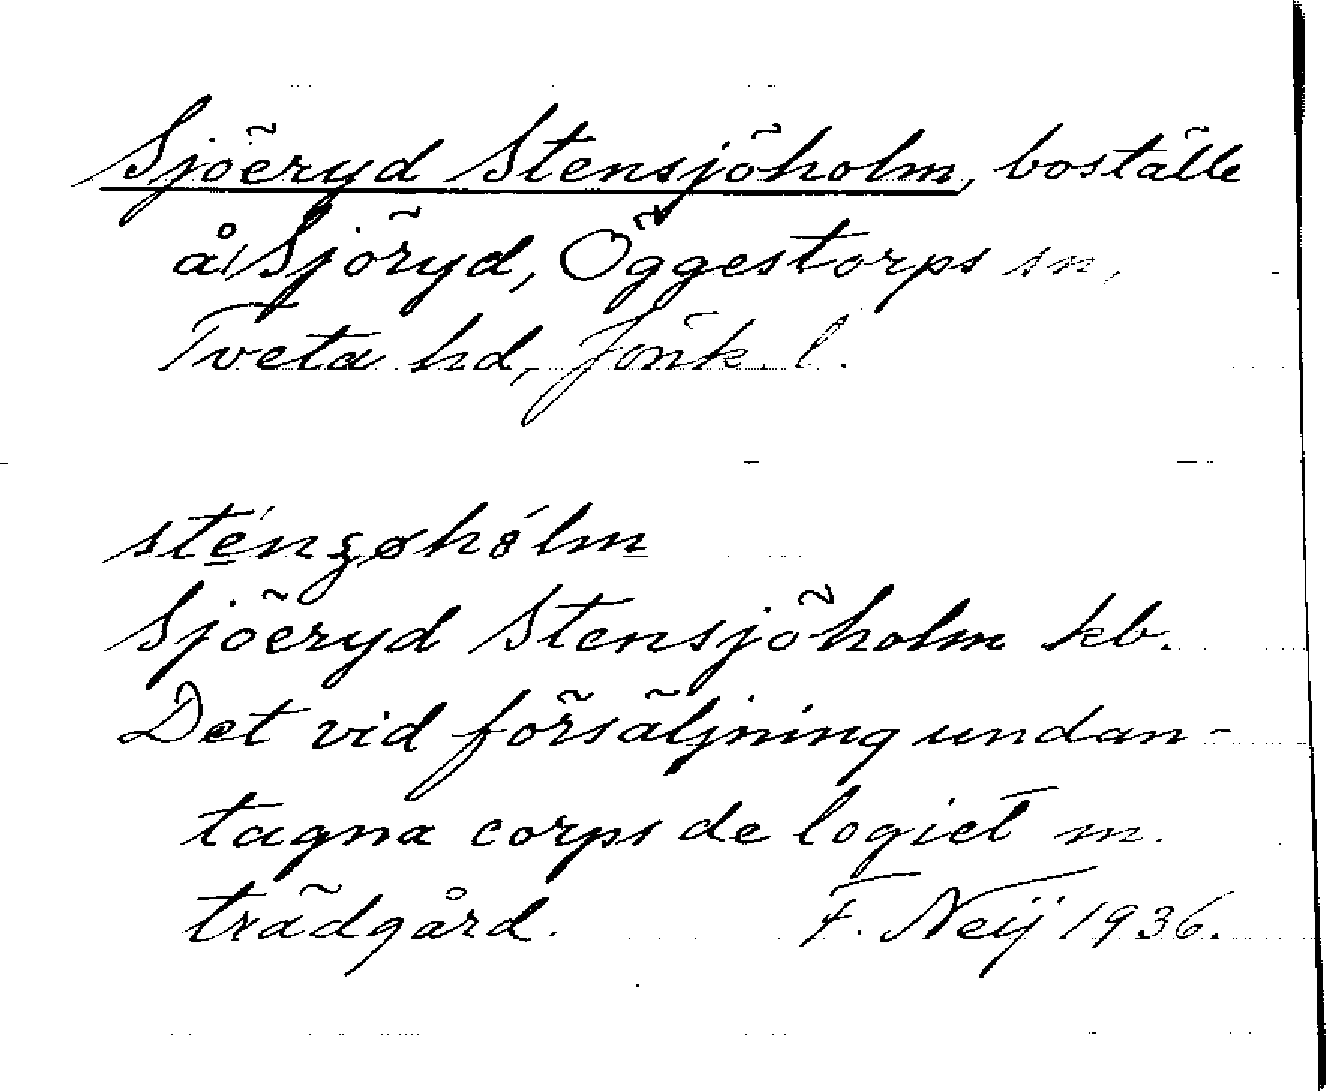 Sjöeryd Stensjöholm, boställe
å Sjöryd, Öggestorps sn,
Tveta hd, Jönk. l.
sténʂøhólm
Sjöeryd Stensjöholm kb.
Det vid försäljning undan-
tagna corps de logiet m.
trädgård. F. Neij 1936.